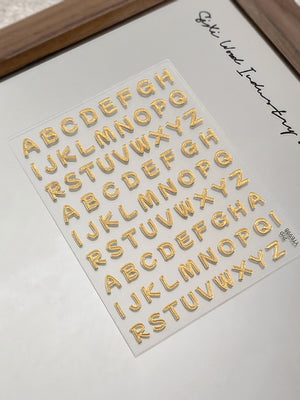 Wood Industry
ABCDEFGH
IJKLMNOPQ
RSTUVWXYZ
ABCDEFGH
IJKLMNOPQ
RSTUVWXYZ
ABCDEFGHA
IJKLMNOPQI
RSTUVWXYZ